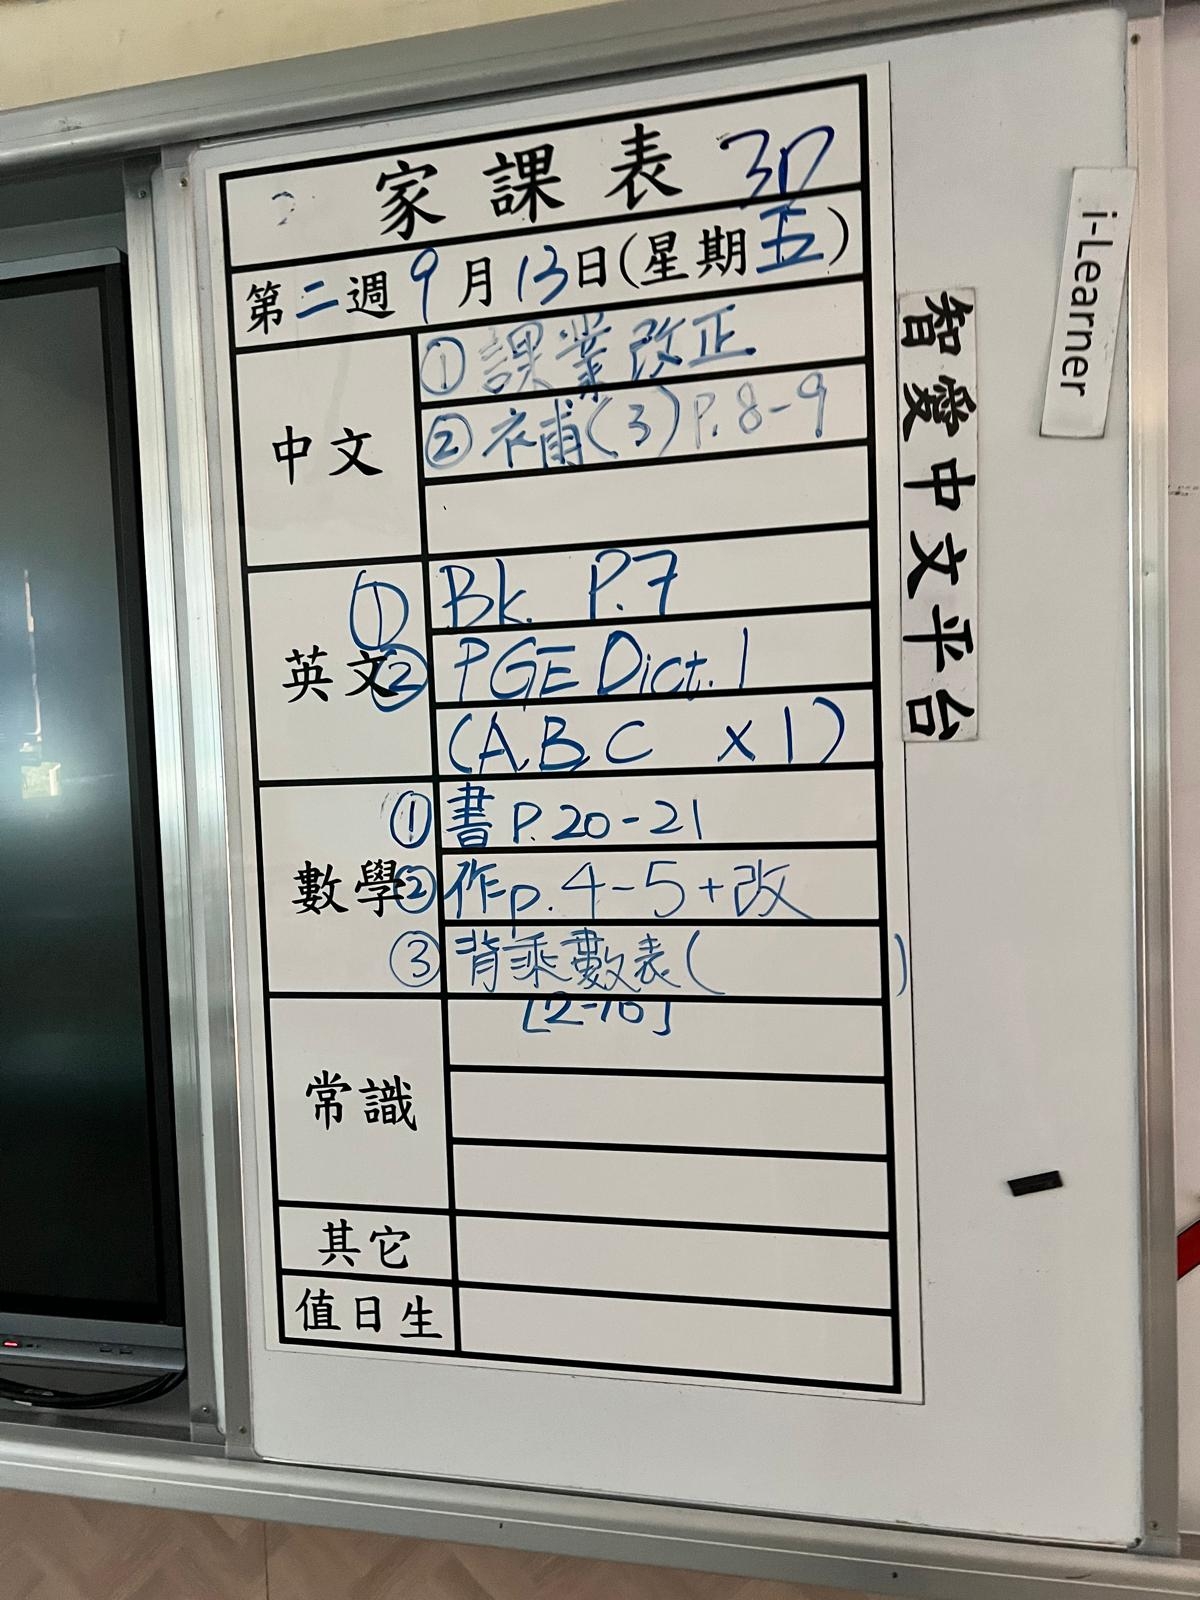 家課表 3D
第二週 9月13日(星期五)
中文
① 課業改正
② 衣補(3)P.8-9
英文
① Bk. P.7
② PGE Dict. 1
(A, B, C x1)
數學
① 書 P.20-21
② 作p.4-5+改
③ 背乘數表( )
[2-10]
常識
其它
值日生
i-Learner
智愛中文平台